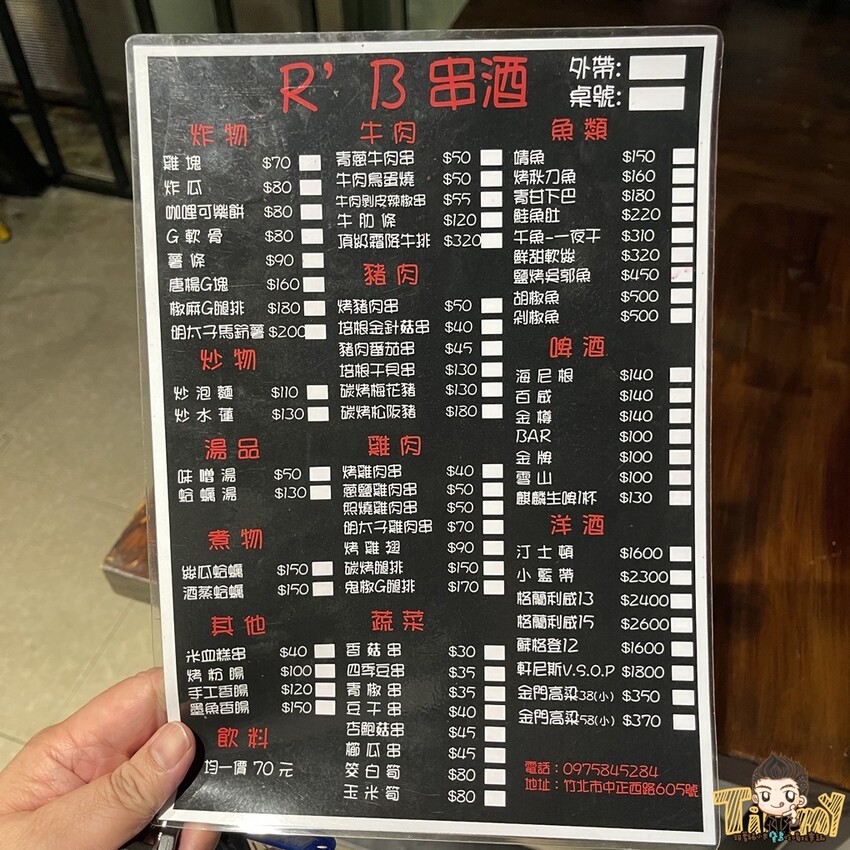 R'B串酒
外帶:
桌號:
炸物
雞塊 $70
炸瓜 $80
咖哩可樂餅 $80
G軟骨 $80
薯條 $90
唐楊G塊 $160
椒麻G腿排 $180
明太子馬鈴薯 $200
炒物
炒泡麵 $110
炒水蓮 $130
湯品
味噌湯 $50
蛤蠣湯 $130
煮物
絲瓜蛤蠣 $150
酒蒸蛤蠣 $150
其他
米血糕串 $40
烤粉腸 $100
手工香腸 $120
墨魚香腸 $150
飲料
均一價70元
牛肉
青蔥牛肉串 $50
牛肉鳥蛋燒 $50
牛肉剝皮辣椒串 $55
牛肋條 $120
頂級霜降牛排 $320
豬肉
烤豬肉串 $50
培根金針菇串 $40
豬肉番茄串 $45
培根干貝串 $130
碳烤梅花豬 $130
碳烤松阪豬 $180
雞肉
烤雞肉串 $40
蔥鹽雞肉串 $50
照燒雞肉串 $50
明太子雞肉串 $70
烤雞翅 $90
碳烤腿排 $150
鬼椒G腿排 $170
蔬菜
香菇串 $30
四季豆串 $35
青椒串 $35
豆干串 $40
杏鮑菇串 $45
櫛瓜串 $45
筊白筍 $80
玉米筍 $80
魚類
鯖魚 $150
烤秋刀魚 $160
青甘下巴 $180
鮭魚肚 $220
午魚一夜干 $310
鮮甜軟絲 $320
鹽烤吳郭魚 $450
胡椒魚 $500
剁椒魚 $500
啤酒
海尼根 $140
百威 $140
金樽 $140
BAR $100
金牌 $100
雪山 $100
麒麟生啤1杯 $130
洋酒
汀士頓 $1600
小藍帶 $2300
格蘭利威13 $2400
格蘭利威15 $2600
蘇格登12 $1600
軒尼斯V.S.O.P $1800
金門高粱38(小) $350
金門高粱58(小) $370
電話:0975845284
地址:竹北市中正西路605號